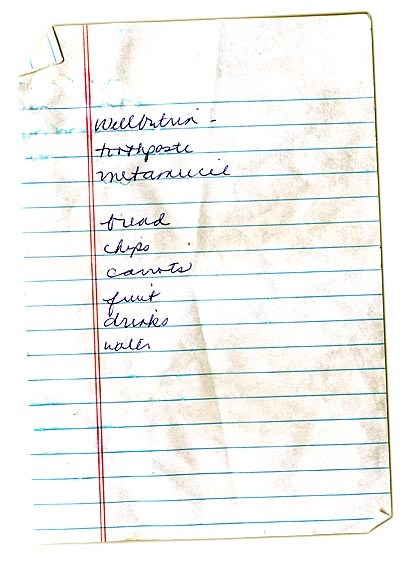 Wellbutrin -
toothpaste
metamucil
bread
chips
carrots
fruit
drinks
water